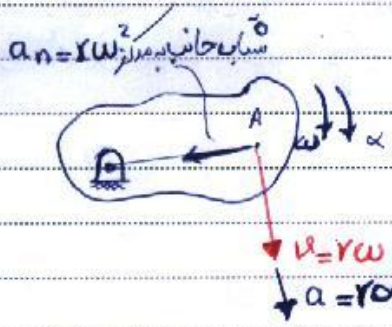 aₙ=rω² شتاب جانب به مرکز
A
ω α
v=rω
a=rα